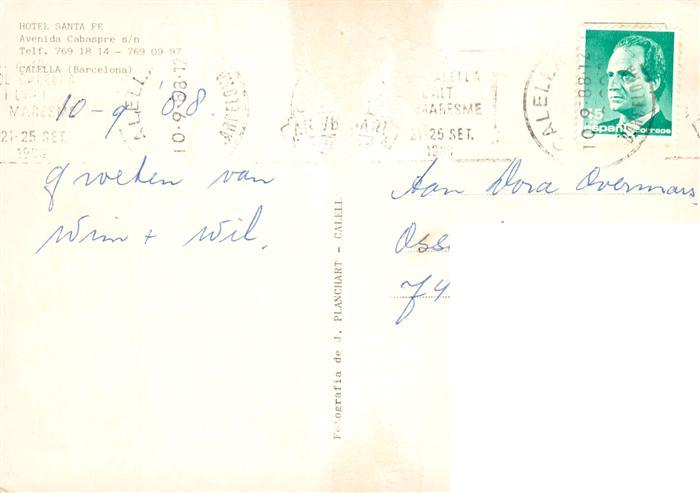 HOTEL SANTA FE
Avenida Cabaspre s/n
Telf. 769 18 14 - 769 09 97
CALELLA (Barcelona)
10-9 '88.
groeten van
Wim + Wil.
Fotografia de J. PLANCHART - CALELL
CALELL
10-9.88-12
BARCELONA
MARESME
21-25 SET.
CALELLA
ALT
MARESME
21-25 SET.
CALELL
10-9.88-12
España correos
Aan Dora Overmars
Oss
74